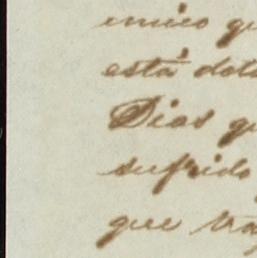 unico qu
está dota
Dios qu
sufrido
que tra